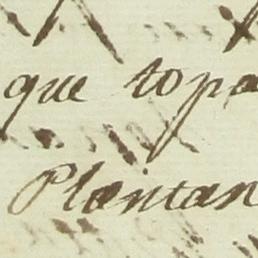 que topa
Plantan